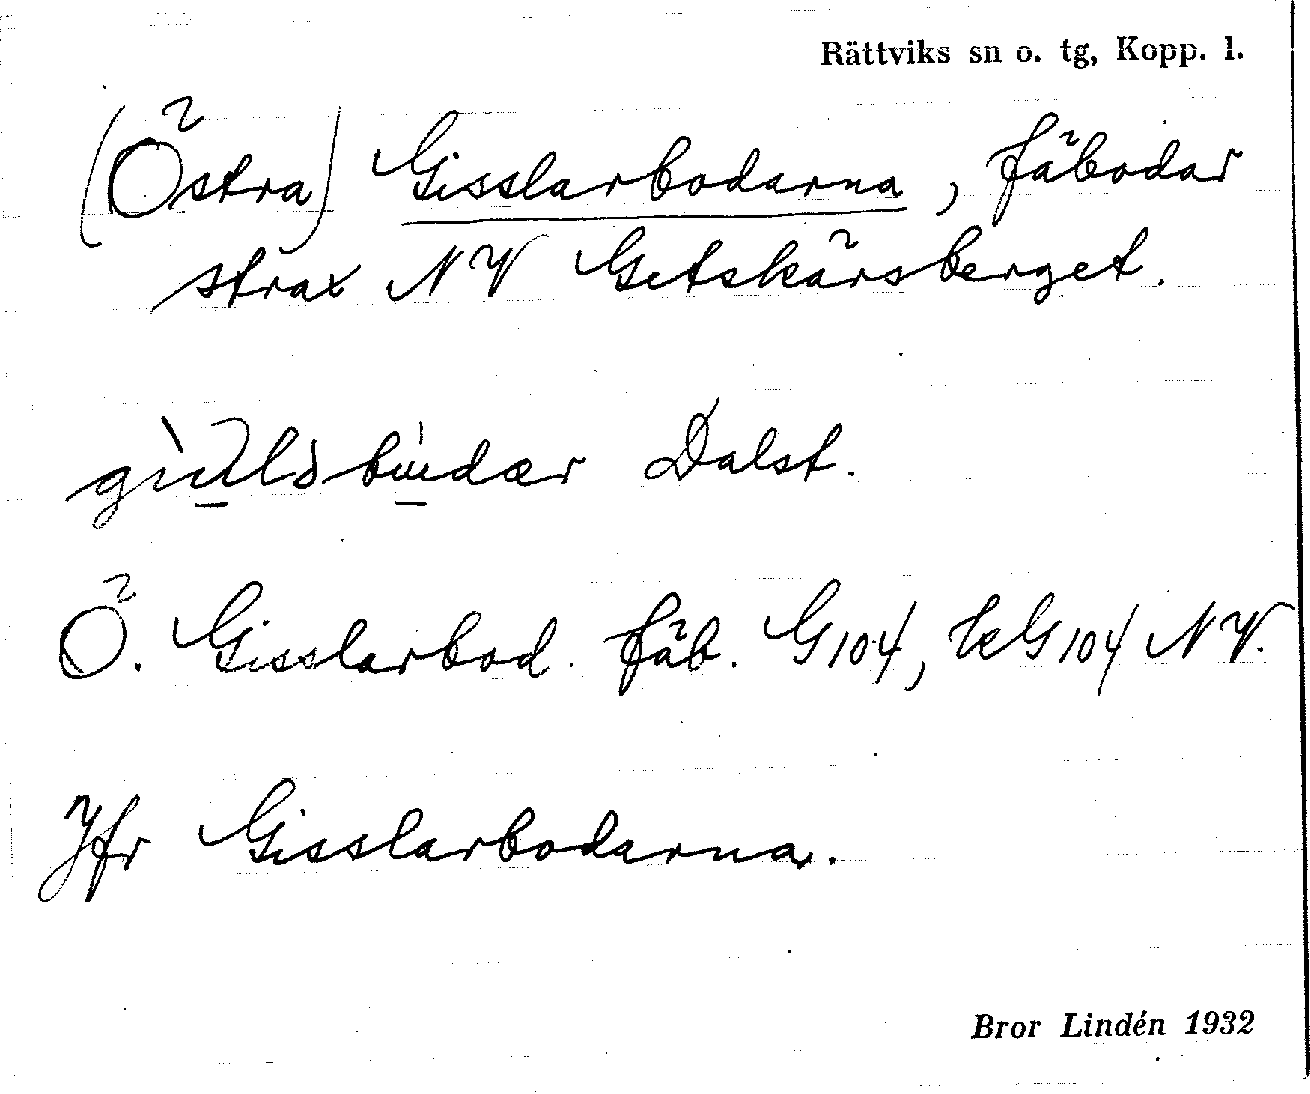 Rättviks sn o. tg, Kopp. l.
(Östra) Gisslarbodarna, fäbodar
strax NV Getskärsberget.
Dalst.
Ö. Gisslarbod. fäb. G104, kG104 NV.
Jfr Gisslarbodarna.
Bror Lindén 1932